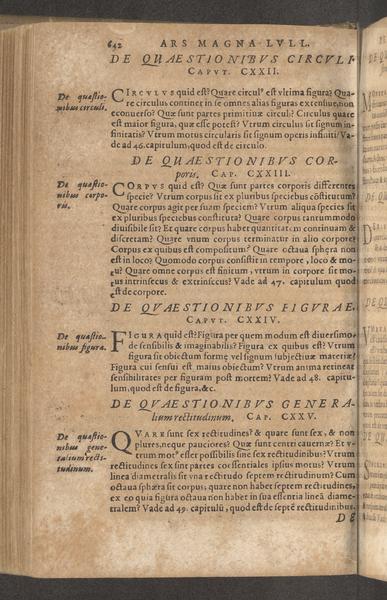 642 ARS MAGNA LVLL.
DE QVAESTIONIBVS CIRCVLI
CAPVT. CXXII.
De quæstio-
nibus circuli.
CIRCVLVS quid est? Quare circulꝰ est vltima figura? Qua-
re circulus continet in se omnes alias figuras extensiue, non
econuerso? Quæ sunt partes primitiuæ circuli? Circulus quare
est maior figura, quæ esse potest? Vtrum circulus sit signum in-
finitatis? Vtrum motus circularis sit signum operis infiniti? Va-
de ad 46. capitulum, quod est de circulo.
DE QVAESTIONIBVS COR-
poris. CAP. CXXIII.
De quæstio-
nibus corpo-
ris.
CORPVS quid est? Quæ sunt partes corporis differentes
specie? Vtrum corpus sit ex pluribus speciebus cōstitutum?
Quare corpus agit per suam speciem? Vtrum aliqua species sit
ex pluribus speciebus constituta? Quare corpus tantummodo
diuisibile sit? Et quare corpus habet quantitatem continuam &
discretam? Quare vnum corpus terminatur in alio corpore?
Corpus ex quibus est compositum? Quare octaua sphæra non
est in loco? Quomodo corpus consistit in tempore, loco & mo-
tu? Quare omne corpus est finitum, vtrum in corpore sit mo-
tus intrinsecus & extrinsecus? Vade ad 47. capitulum quod
est de corpore.
DE QVAESTIONIBVS FIGVRAE.
CAPVT. CXXIV.
De quæstio-
nibus figura.
FIGVRA quid est? Figura per quem modum est diuersimo-
de sensibilis & imaginabilis? Figura ex quibus est? Vtrum
figura sit obiectum formę vel signum subiectiuæ materiæ?
Figura cui sensui est maius obiectum? Vtrum anima retineat
sensibilitates per figuram post mortem? Vade ad 48. capitu-
lum, quod est de figura, &c.
DE QVAESTIONIBVS GENERA-
lium rectitudinum. CAP. CXXV.
De quæstio-
nibus gene-
ralium recti-
tudinum.
QVARE sunt sex rectitudines? & quare sunt sex, & non
plures, neque pauciores? Quæ sunt centri cauernæ? Et v-
trum motꝰ esset possibilis sine sex rectitudinibus? Vtrum
rectitudines sex sint partes coessentiales ipsius motus? Vtrum
linea diametralis sit vna rectitudo septem rectitudinum? Cum
octaua sphæra sit corpus, quare non habet septem rectitudines,
ex eo quia figura octaua non habet in sua essentia lineā diame-
tralem? Vade ad 49. capitulū, quod est de septē rectitudinibus.
DE